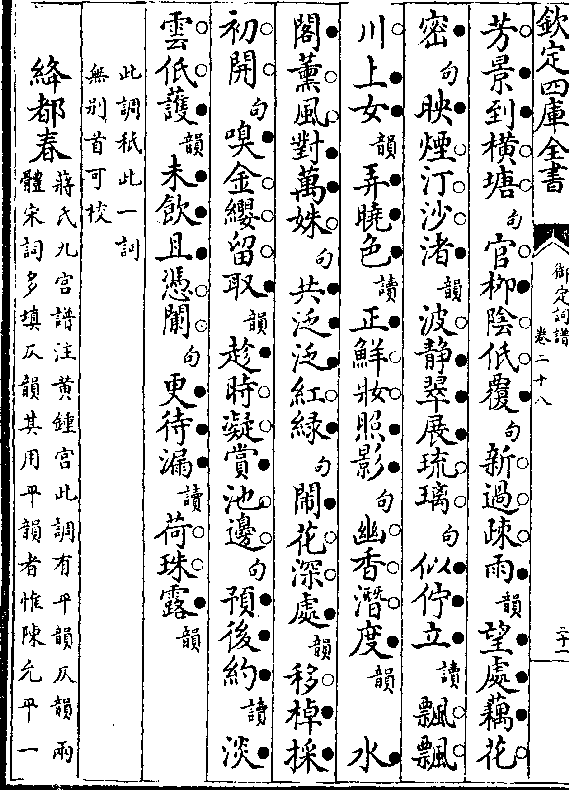 欽定四庫全書
御定詞譜
卷二十八
二十一
芳景到橫塘句官栁陰低覆句新過疎雨韻望處藕花
密句映煙汀沙渚韻波静翠展琉璃句似佇立讀飄飄
川上女韻弄曉色讀正鮮妝照影句幽香潛度韻 水
閣薰風對萬姝句共泛泛紅綠句閙花深處韻移棹採
初開句嗅金纓留取韻趁時凝賞池邊句預後約讀淡
雲低䕶韻未飲且憑闌句更待漏讀荷珠露韻
此調秪此一詞
無别首可校
絳都春蔣氏九宮譜注黄鍾宫此調有平韻仄韻兩
體宋詞多填仄韻其用平韻者惟陳允平一